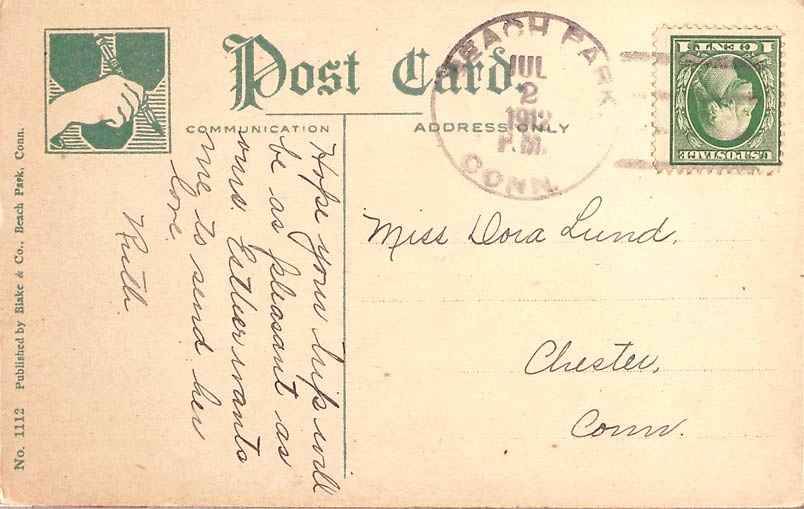 Post Card.
COMMUNICATION
ADDRESS ONLY
BEACH PARK
JUL
2
1912
P.M.
CONN.
1 ONE 1
U.S. POSTAGE
Hope your trip will
be as pleasant as
ours. Esther wants
me to send her
love.
Ruth.
Miss Dora Lund,
Chester,
Conn.
No. 1112 Published by Blake & Co., Beach Park, Conn.